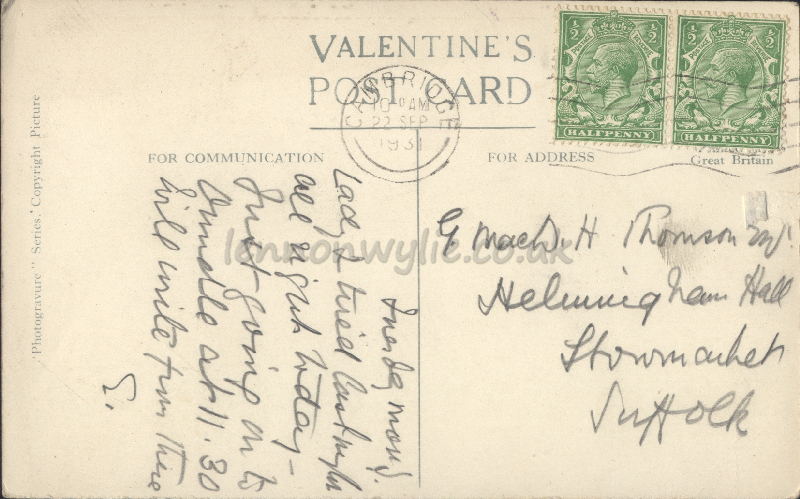 VALENTINE'S
POST CARD
CAMBRIDGE
10 AM
22 SEP
1931
½ ½
HALFPENNY
½ ½
HALFPENNY
FOR COMMUNICATION
FOR ADDRESS
Great Britain
"Photogravure" Series. Copyright Picture
Tuesday morng.
Lady L tired last night
all right today –
Just going on to
Oundle at 11.30
Will write from there
G. MacD. H Thomson Esq.
Helmingham Hall
Stowmarket
Suffolk
lennonwylie.co.uk